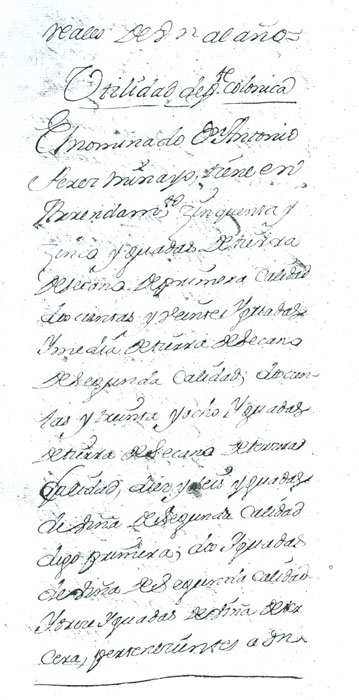 reales de vn al año=
Utilidad de pte Colonica
El nominado Dn Antonio
Perez minayo, tiene en
Arrendamto Zinquenta y
Zinco yguadas de tierra
de secano de primera Calidad
doscientas y Veinte Yguadas
Y media de tierra de secano
de segunda Calidad; doscien-
tas y treinta y ocho Yguadas
de tierra de secano de tercera
Calidad, diez y seis yguadas
de viña de segunda Calidad
digo primera; dos Yguadas
de viña de segunda Calidad
Y trece Yguadas de viña de ter
cera, pertenecientes a Dn